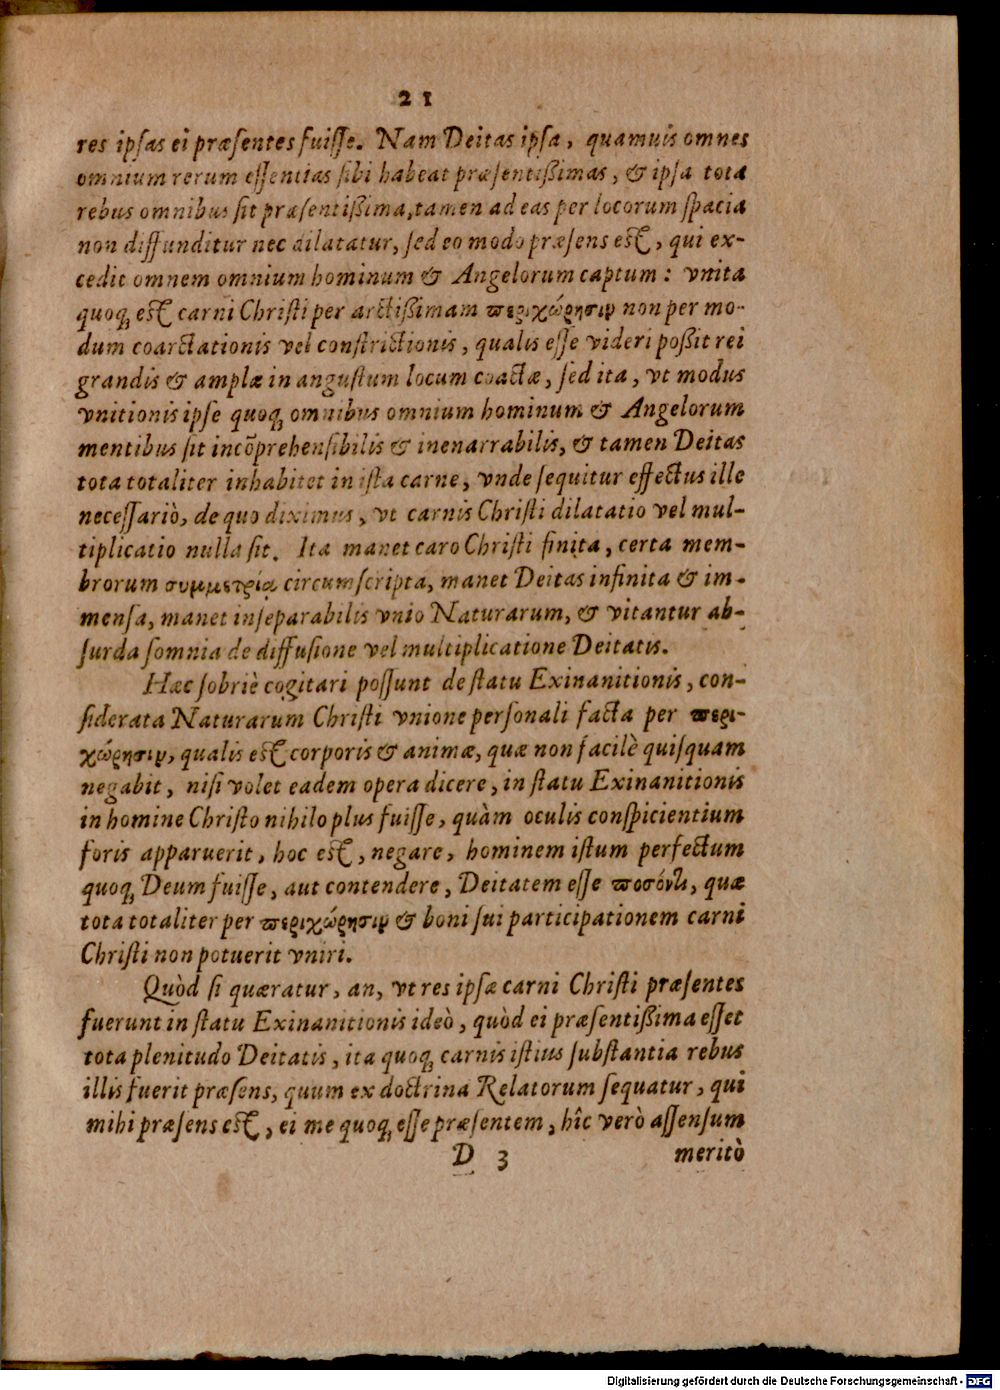 21
res ipsas ei præsentes fuisse. Nam Deitas ipsa, quamuis omnes
omnium rerum essentias sibi habeat præsentißimas, & ipsa tota
rebus omnibus sit præsentißima, tamen ad eas per locorum spacia
non diffunditur nec dilatatur, sed eo modo præsens est, qui ex-
cedit omnem omnium hominum & Angelorum captum: vnita
quoq; est carni Christi per arctißimam περιχώρησιν non per mo-
dum coarctationis vel constrictionis, qualis esse videri poßit rei
grandis & amplæ in angustum locum coactæ, sed ita, vt modus
vnitionis ipse quoq; omnibus omnium hominum & Angelorum
mentibus sit incõprehensibilis & inenarrabilis, & tamen Deitas
tota totaliter inhabitet in ista carne, vnde sequitur effectus ille
necessariò, de quo diximus, vt carnis Christi dilatatio vel mul-
tiplicatio nulla sit. Ita manet caro Christi finita, certa mem-
brorum συμμετρίᾳ circumscripta, manet Deitas infinita & im-
mensa, manet inseparabilis vnio Naturarum, & vitantur ab-
surda somnia de diffusione vel multiplicatione Deitatis.
Hæc sobriè cogitari possunt de statu Exinanitionis, con-
siderata Naturarum Christi vnione personali facta per περι-
χώρησιν, qualis est corporis & animæ, quæ non facilè quisquam
negabit, nisi volet eadem opera dicere, in statu Exinanitionis
in homine Christo nihilo plus fuisse, quàm oculis conspicientium
foris apparuerit, hoc est, negare, hominem istum perfectum
quoq; Deum fuisse, aut contendere, Deitatem esse ποσόντι, quæ
tota totaliter per περιχώρησιν & boni sui participationem carni
Christi non potuerit vniri.
Quòd si quæratur, an, vt res ipsæ carni Christi præsentes
fuerunt in statu Exinanitionis ideò, quòd ei præsentißima esset
tota plenitudo Deitatis, ita quoq; carnis istius substantia rebus
illis fuerit præsens, quum ex doctrina Relatorum sequatur, qui
mihi præsens est, ei me quoq; esse præsentem, hîc verò assensum
D 3 meritò
Digitalisierung gefördert durch die Deutsche Forschungsgemeinschaft - DFG